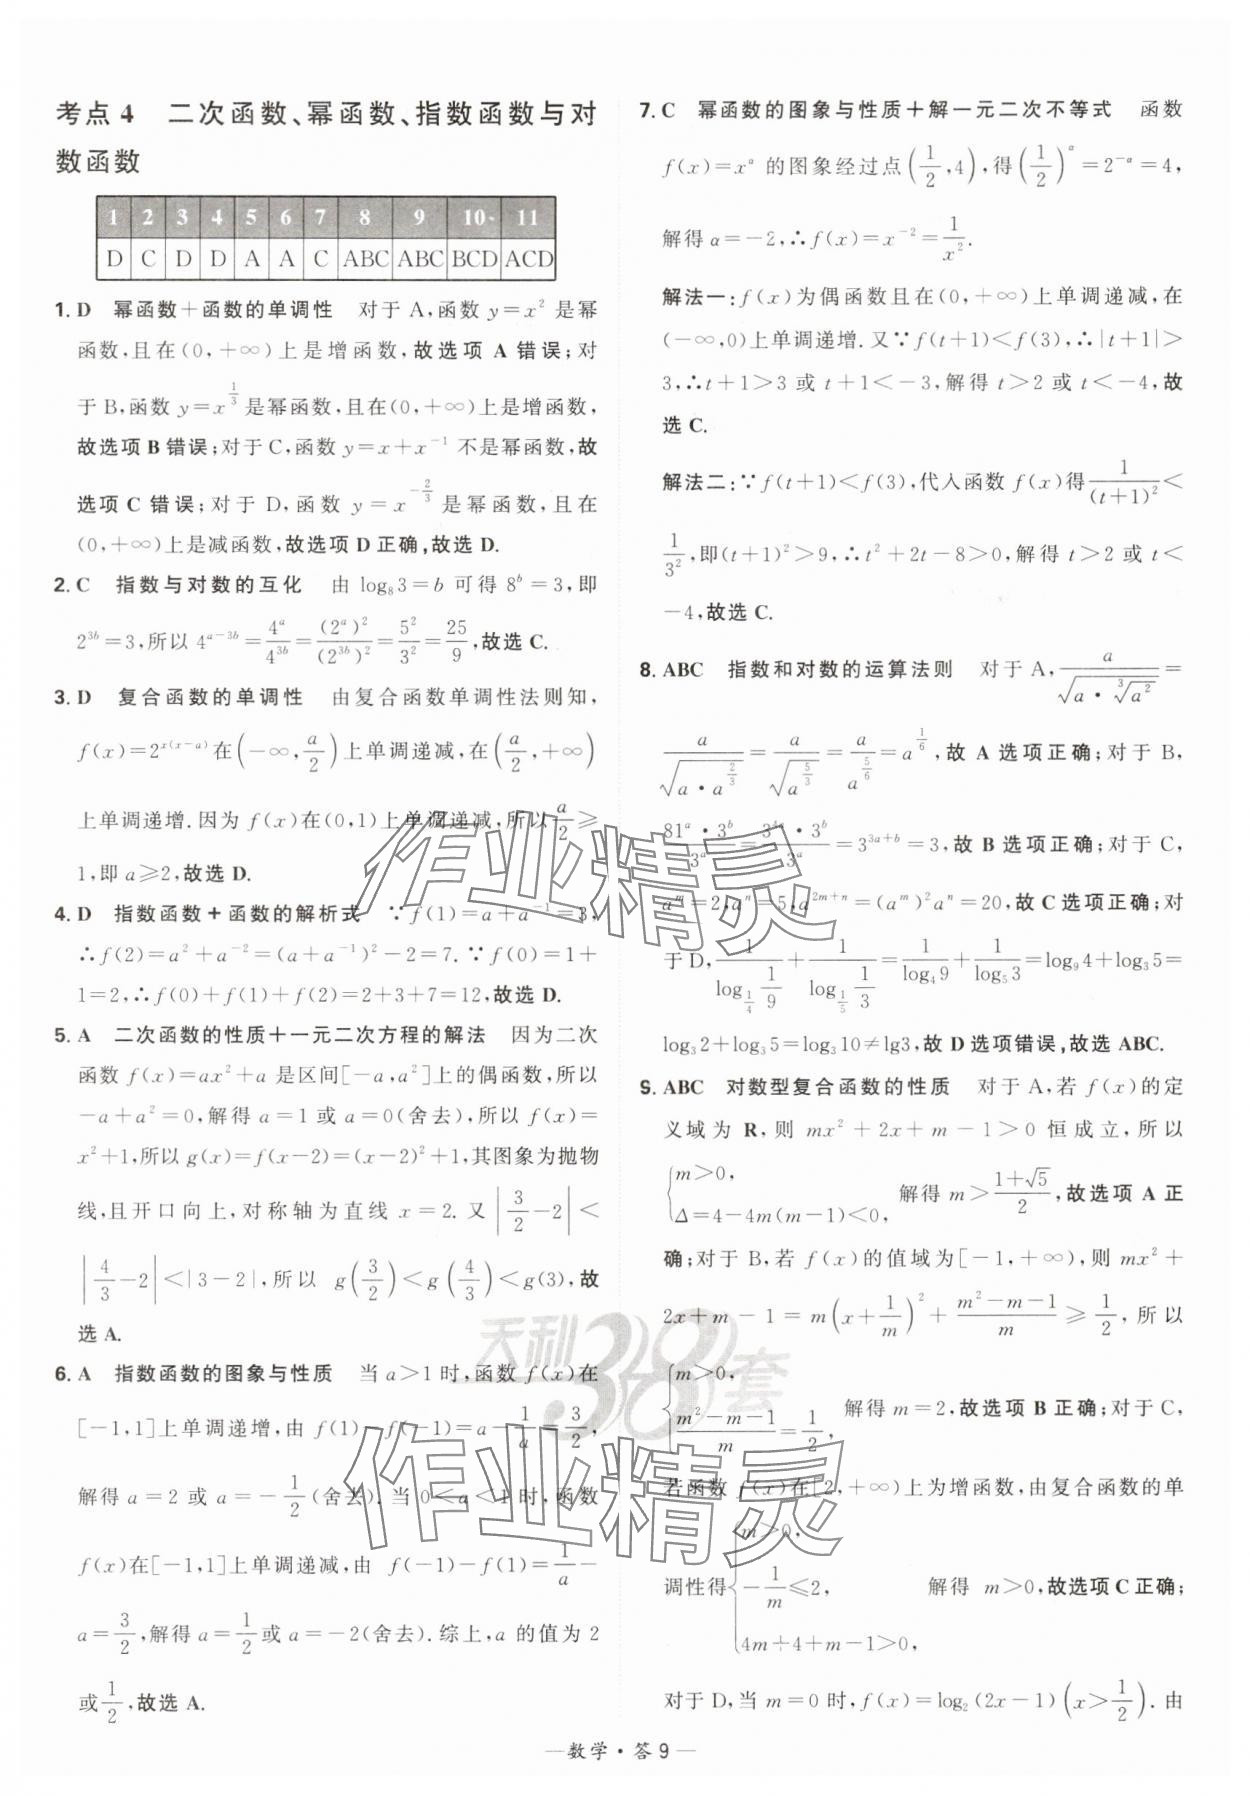 考点 4 二次函数、幂函数、指数函数与对
数函数
1 2 3 4 5 6 7 8 9 10 11
D C D D A A C ABC ABC BCD ACD
1. D 幂函数＋函数的单调性 对于 A,函数 y=x² 是幂
函数,且在(0,+∞)上是增函数,故选项 A 错误;对
于 B,函数 y=x^{1/3} 是幂函数,且在(0,+∞)上是增函数,
故选项B错误;对于C,函数 y=x+x⁻¹ 不是幂函数,故
选项 C 错误;对于 D,函数 y=x^{-2/3} 是幂函数,且在
(0,+∞)上是减函数,故选项D正确,故选 D.
2. C 指数与对数的互化 由 log₈3=b 可得 8^b=3,即
2^{3b}=3,所以 4^{a-3b}=4^a/4^{3b}=(2^a)²/(2^{3b})²=5²/3²=25/9,故选C.
3. D 复合函数的单调性 由复合函数单调性法则知,
f(x)=2^{x(x-a)}在(-∞,a/2)上单调递减,在(a/2,+∞)
上单调递增.因为 f(x)在(0,1)上单调递减,所以 a/2≥
1,即 a≥2,故选 D.
4. D 指数函数+函数的解析式 ∵f(1)=a+a⁻¹=3,
∴f(2)=a²+a⁻²=(a+a⁻¹)²-2=7.∵f(0)=1+
1=2,∴f(0)+f(1)+f(2)=2+3+7=12,故选 D.
5. A 二次函数的性质＋一元二次方程的解法 因为二次
函数 f(x)=ax²+a 是区间[-a,a²]上的偶函数,所以
-a+a²=0,解得 a=1 或 a=0(舍去),所以 f(x)=
x²+1,所以 g(x)=f(x-2)=(x-2)²+1,其图象为抛物
线,且开口向上,对称轴为直线 x=2.又|3/2-2|<
|4/3-2|<|3-2|,所以 g(3/2)<g(4/3)<g(3),故
选 A.
6. A 指数函数的图象与性质 当 a>1 时,函数 f(x)在
[-1,1]上单调递增,由 f(1)-f(-1)=a-1/a=3/2,
解得 a=2 或 a=-1/2(舍去).当 0<a<1 时,函数
f(x)在[-1,1]上单调递减,由 f(-1)-f(1)=1/a-
a=3/2,解得 a=1/2或 a=-2(舍去).综上,a 的值为 2
或1/2,故选 A.
7. C 幂函数的图象与性质＋解一元二次不等式 函数
f(x)=x^α 的图象经过点(1/2,4),得(1/2)^α=2^{-α}=4,
解得 α=-2,∴f(x)=x⁻²=1/x².
解法一:f(x)为偶函数且在(0,+∞)上单调递减,在
(-∞,0)上单调递增.又∵f(t+1)<f(3),∴|t+1|>
3,∴t+1>3 或 t+1<-3,解得 t>2 或 t<-4,故
选 C.
解法二:∵f(t+1)<f(3),代入函数 f(x)得1/(t+1)²<
1/3²,即(t+1)²>9,∴t²+2t-8>0,解得 t>2 或 t<
-4,故选 C.
8. ABC 指数和对数的运算法则 对于 A,a/√(a·∛a²)=
a/√(a·a^{2/3})=a/√(a^{5/3})=a/a^{5/6}=a^{1/6},故 A 选项正确;对于 B,
81^a·3^b/3^a=3^{4a}·3^b/3^a=3^{3a+b}=3,故 B 选项正确;对于 C,
a^m=2,a^n=5,a^{2m+n}=(a^m)²a^n=20,故C选项正确;对
于 D,1/log_{1/4}(1/9)+1/log_{1/5}(1/3)=1/log₄9+1/log₅3=log₉4+log₃5=
log₃2+log₃5=log₃10≠lg3,故 D 选项错误,故选 ABC.
9. ABC 对数型复合函数的性质 对于 A,若 f(x)的定
义域为 R,则 mx²+2x+m-1>0 恒成立,所以
{m>0, Δ=4-4m(m-1)<0, 解得 m>(1+√5)/2,故选项 A 正
确;对于 B,若 f(x)的值域为[-1,+∞),则 mx²+
2x+m-1=m(x+1/m)²+(m²-m-1)/m≥1/2,所以
{m>0, (m²-m-1)/m=1/2, 解得 m=2,故选项 B 正确;对于 C,
若函数 f(x)在[2,+∞)上为增函数,由复合函数的单
调性得{m>0, -1/m≤2, 4m+4+m-1>0, 解得 m>0,故选项 C 正确;
对于 D,当 m=0 时,f(x)=log₂(2x-1)(x>1/2).由
作业精灵
天利38套
作业精灵
—数学·答 9—